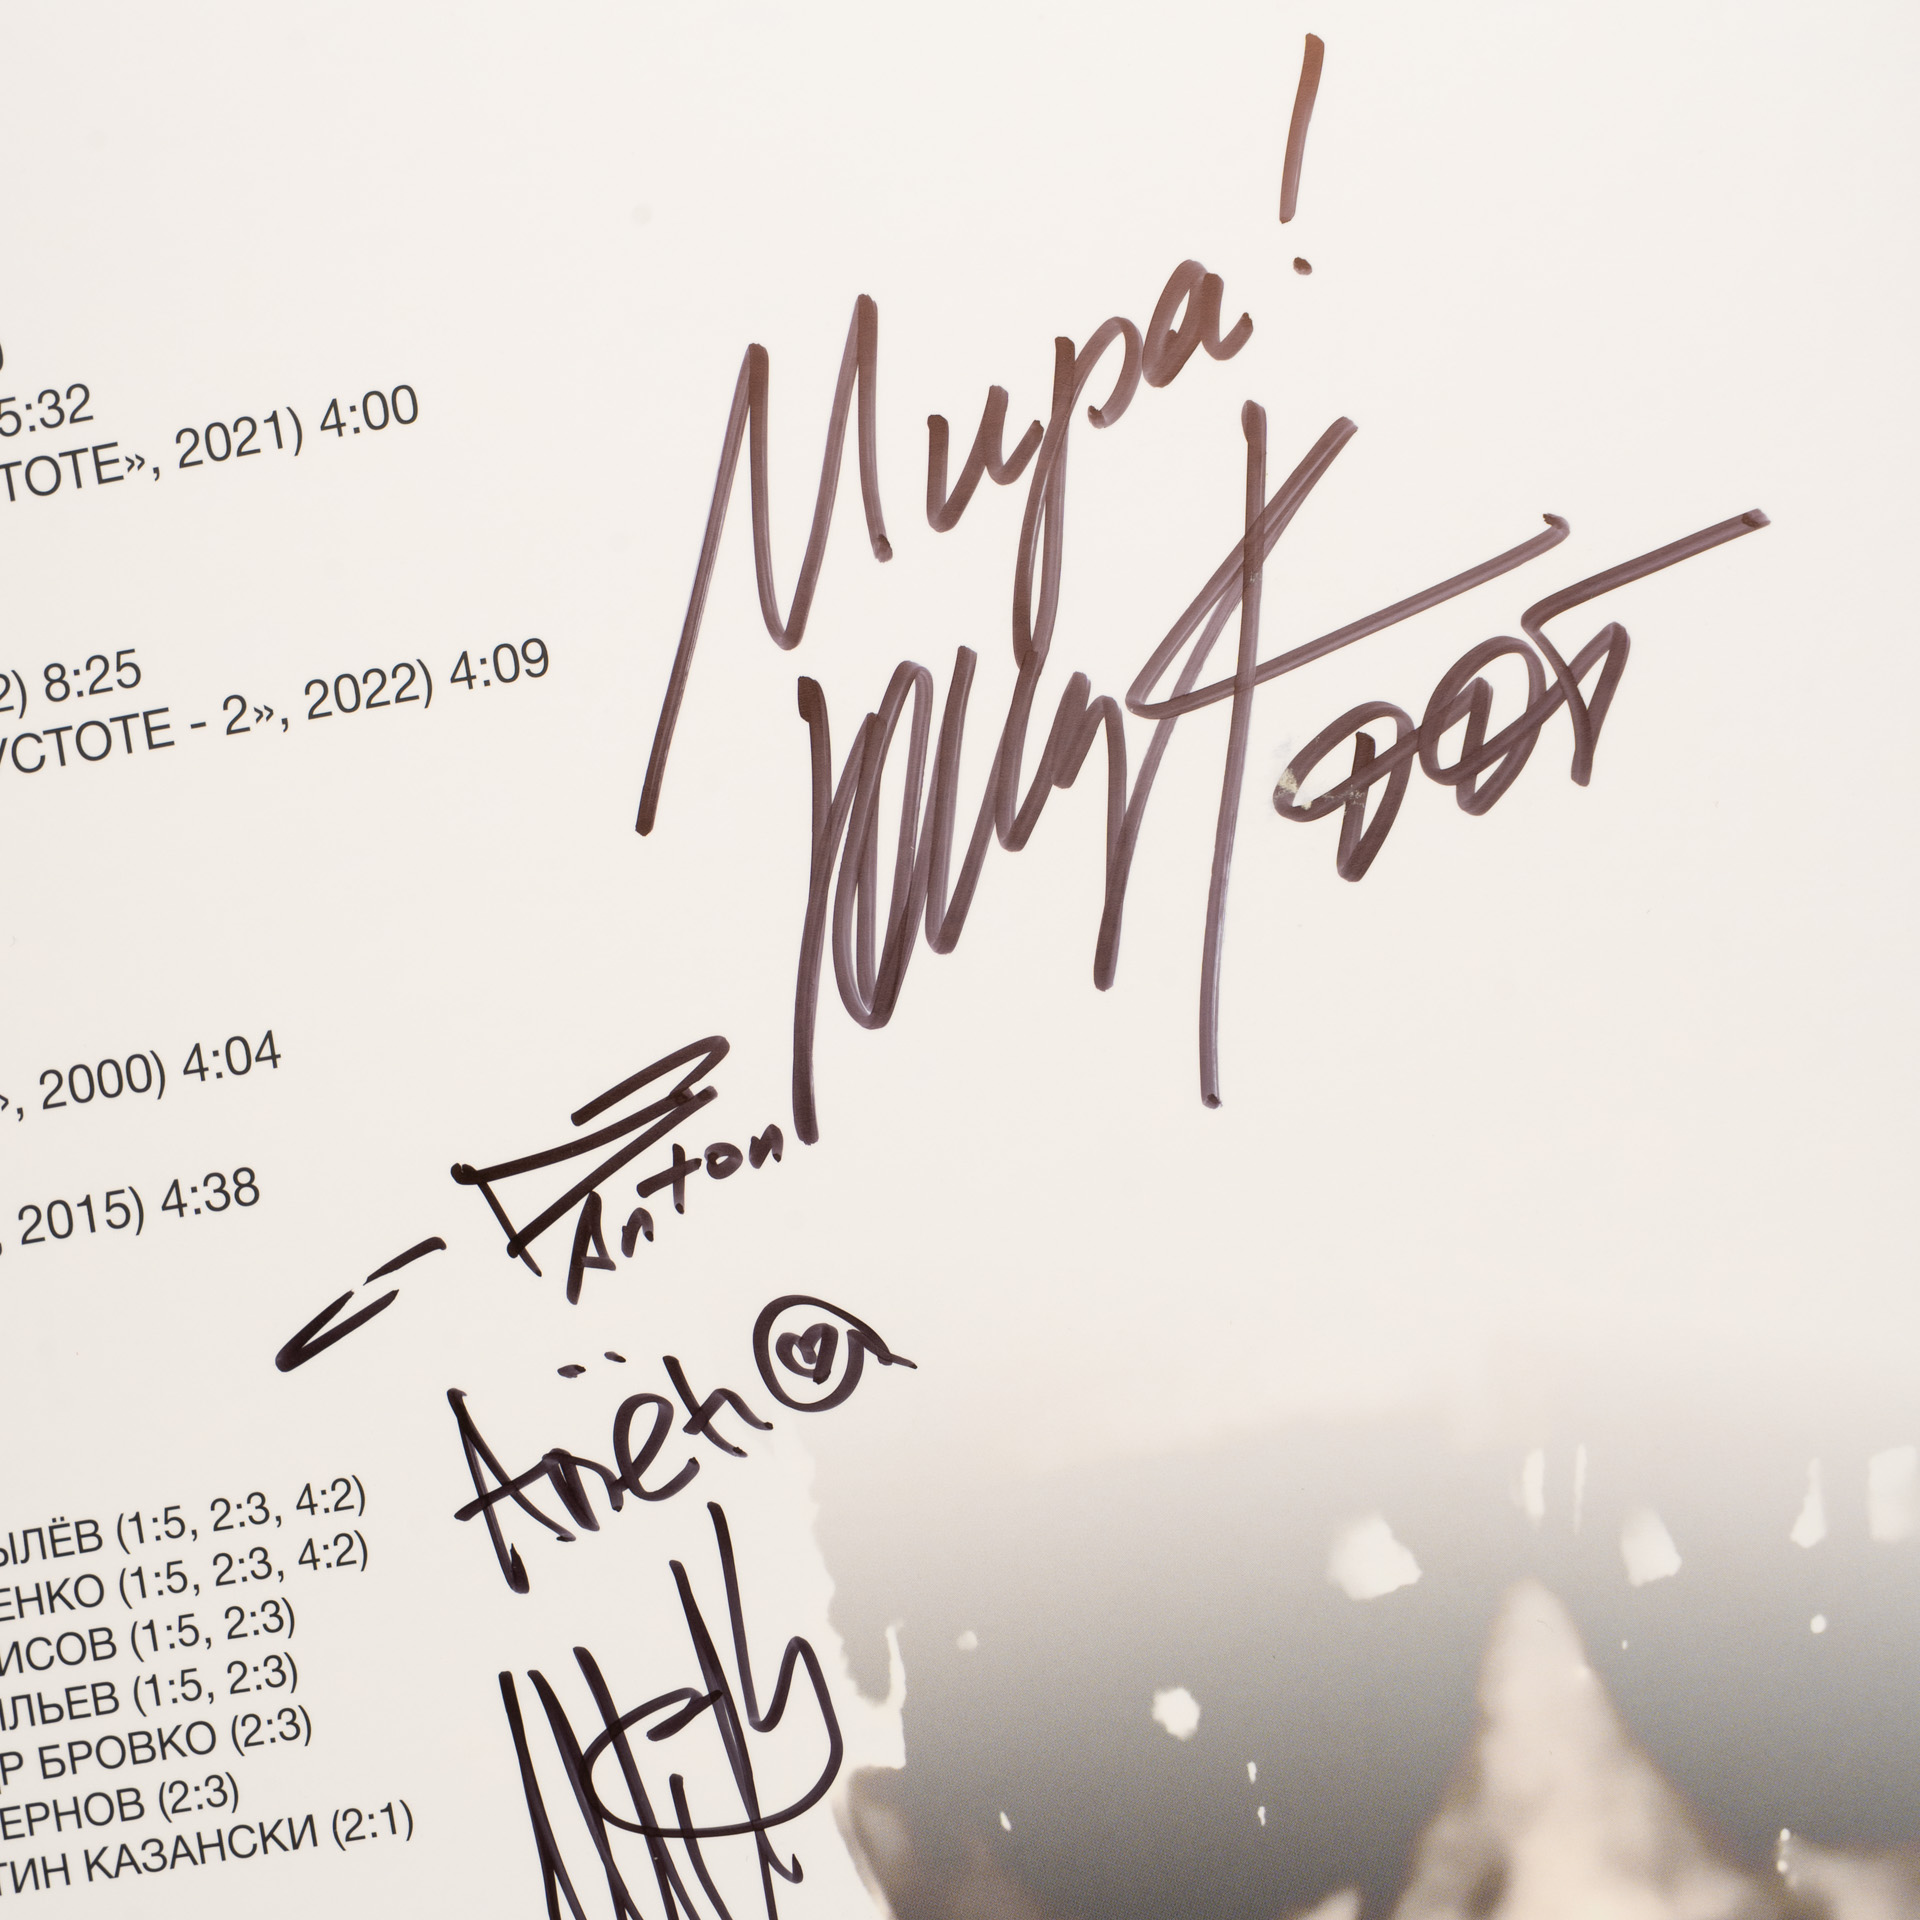 5:32
ТОТЕ», 2021) 4:00
2) 8:25
УСТОТЕ - 2», 2022) 4:09
», 2000) 4:04
, 2015) 4:38
ЫЛЁВ (1:5, 2:3, 4:2)
ЕНКО (1:5, 2:3, 4:2)
ИСОВ (1:5, 2:3)
ИЛЬЕВ (1:5, 2:3)
Р БРОВКО (2:3)
ЕРНОВ (2:3)
ТИН КАЗАНСКИ (2:1)
Мира!
Anton
Алёна